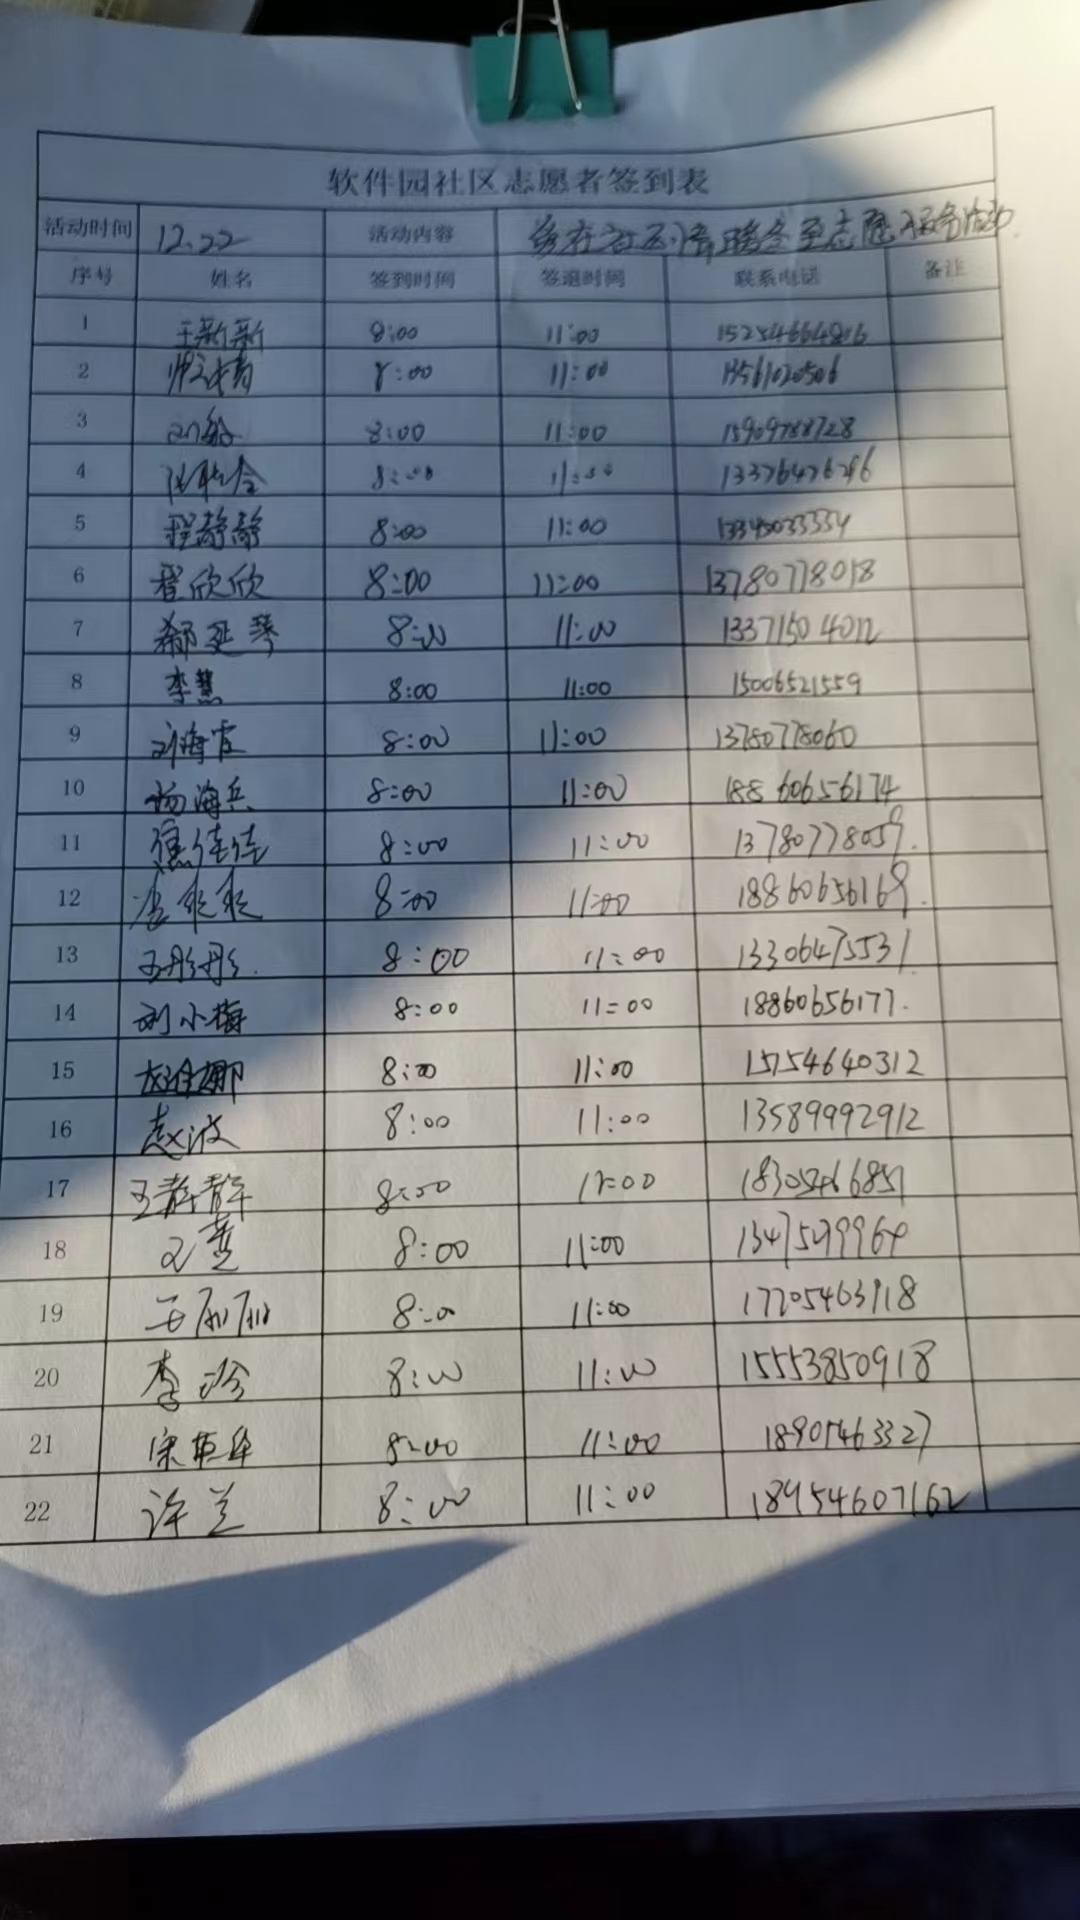 软件园社区志愿者签到表
活动时间 12.22 活动内容 爱在社区 情暖冬至志愿服务活动
序号 姓名 签到时间 签退时间 联系电话 备注
1 王新新 8:00 11:00 15254664806
2 8:00 11:00 13561020506
3 8:00 11:00 15909788728
4 8:00 11:00 13376476296
5 程静静 8:00 11:00 13345033334
6 翟欣欣 8:00 11:00 13780778018
7 郗延琴 8:00 11:00 13371504012
8 李慧 8:00 11:00 15006521559
9 刘海霞 8:00 11:00 13780778060
10 杨海兵 8:00 11:00 18860656174
11 焦佳佳 8:00 11:00 13780778059.
12 8:00 11:00 18860656169.
13 王彤彤. 8:00 11:00 13306475531
14 刘小梅 8:00 11:00 18860656177.
15 8:00 11:00 15754640312
16 赵波 8:00 11:00 13589992912
17 王静静 8:00 11:00 18305466851
18 8:00 11:00
19 王丽丽 8:00 11:00 17705463918
20 李珍 8:00 11:00 15553850918
21 8:00 11:00 18901463327
22 许兰 8:00 11:00 18954607162